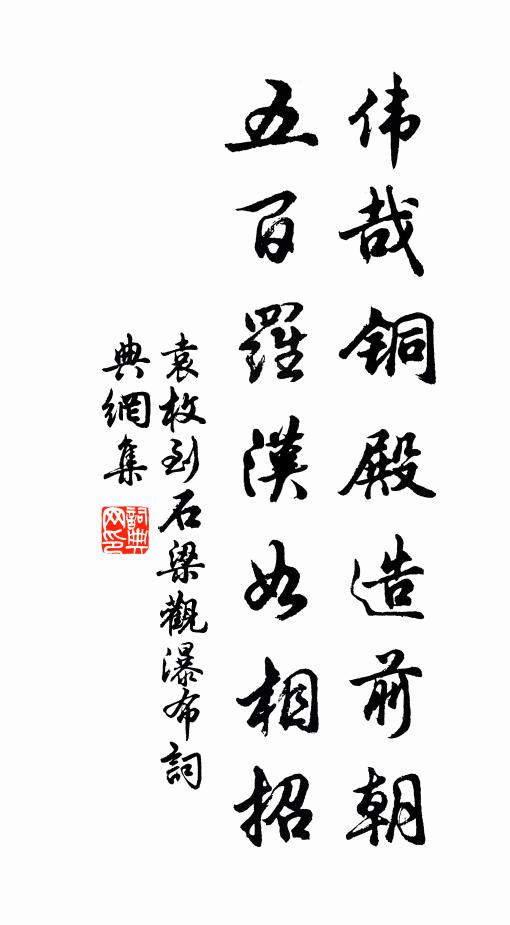 伟哉铜殿造前朝
五百羅漢如相招
袁枚到石梁觀瀑布詞
典網集
詞典
网印